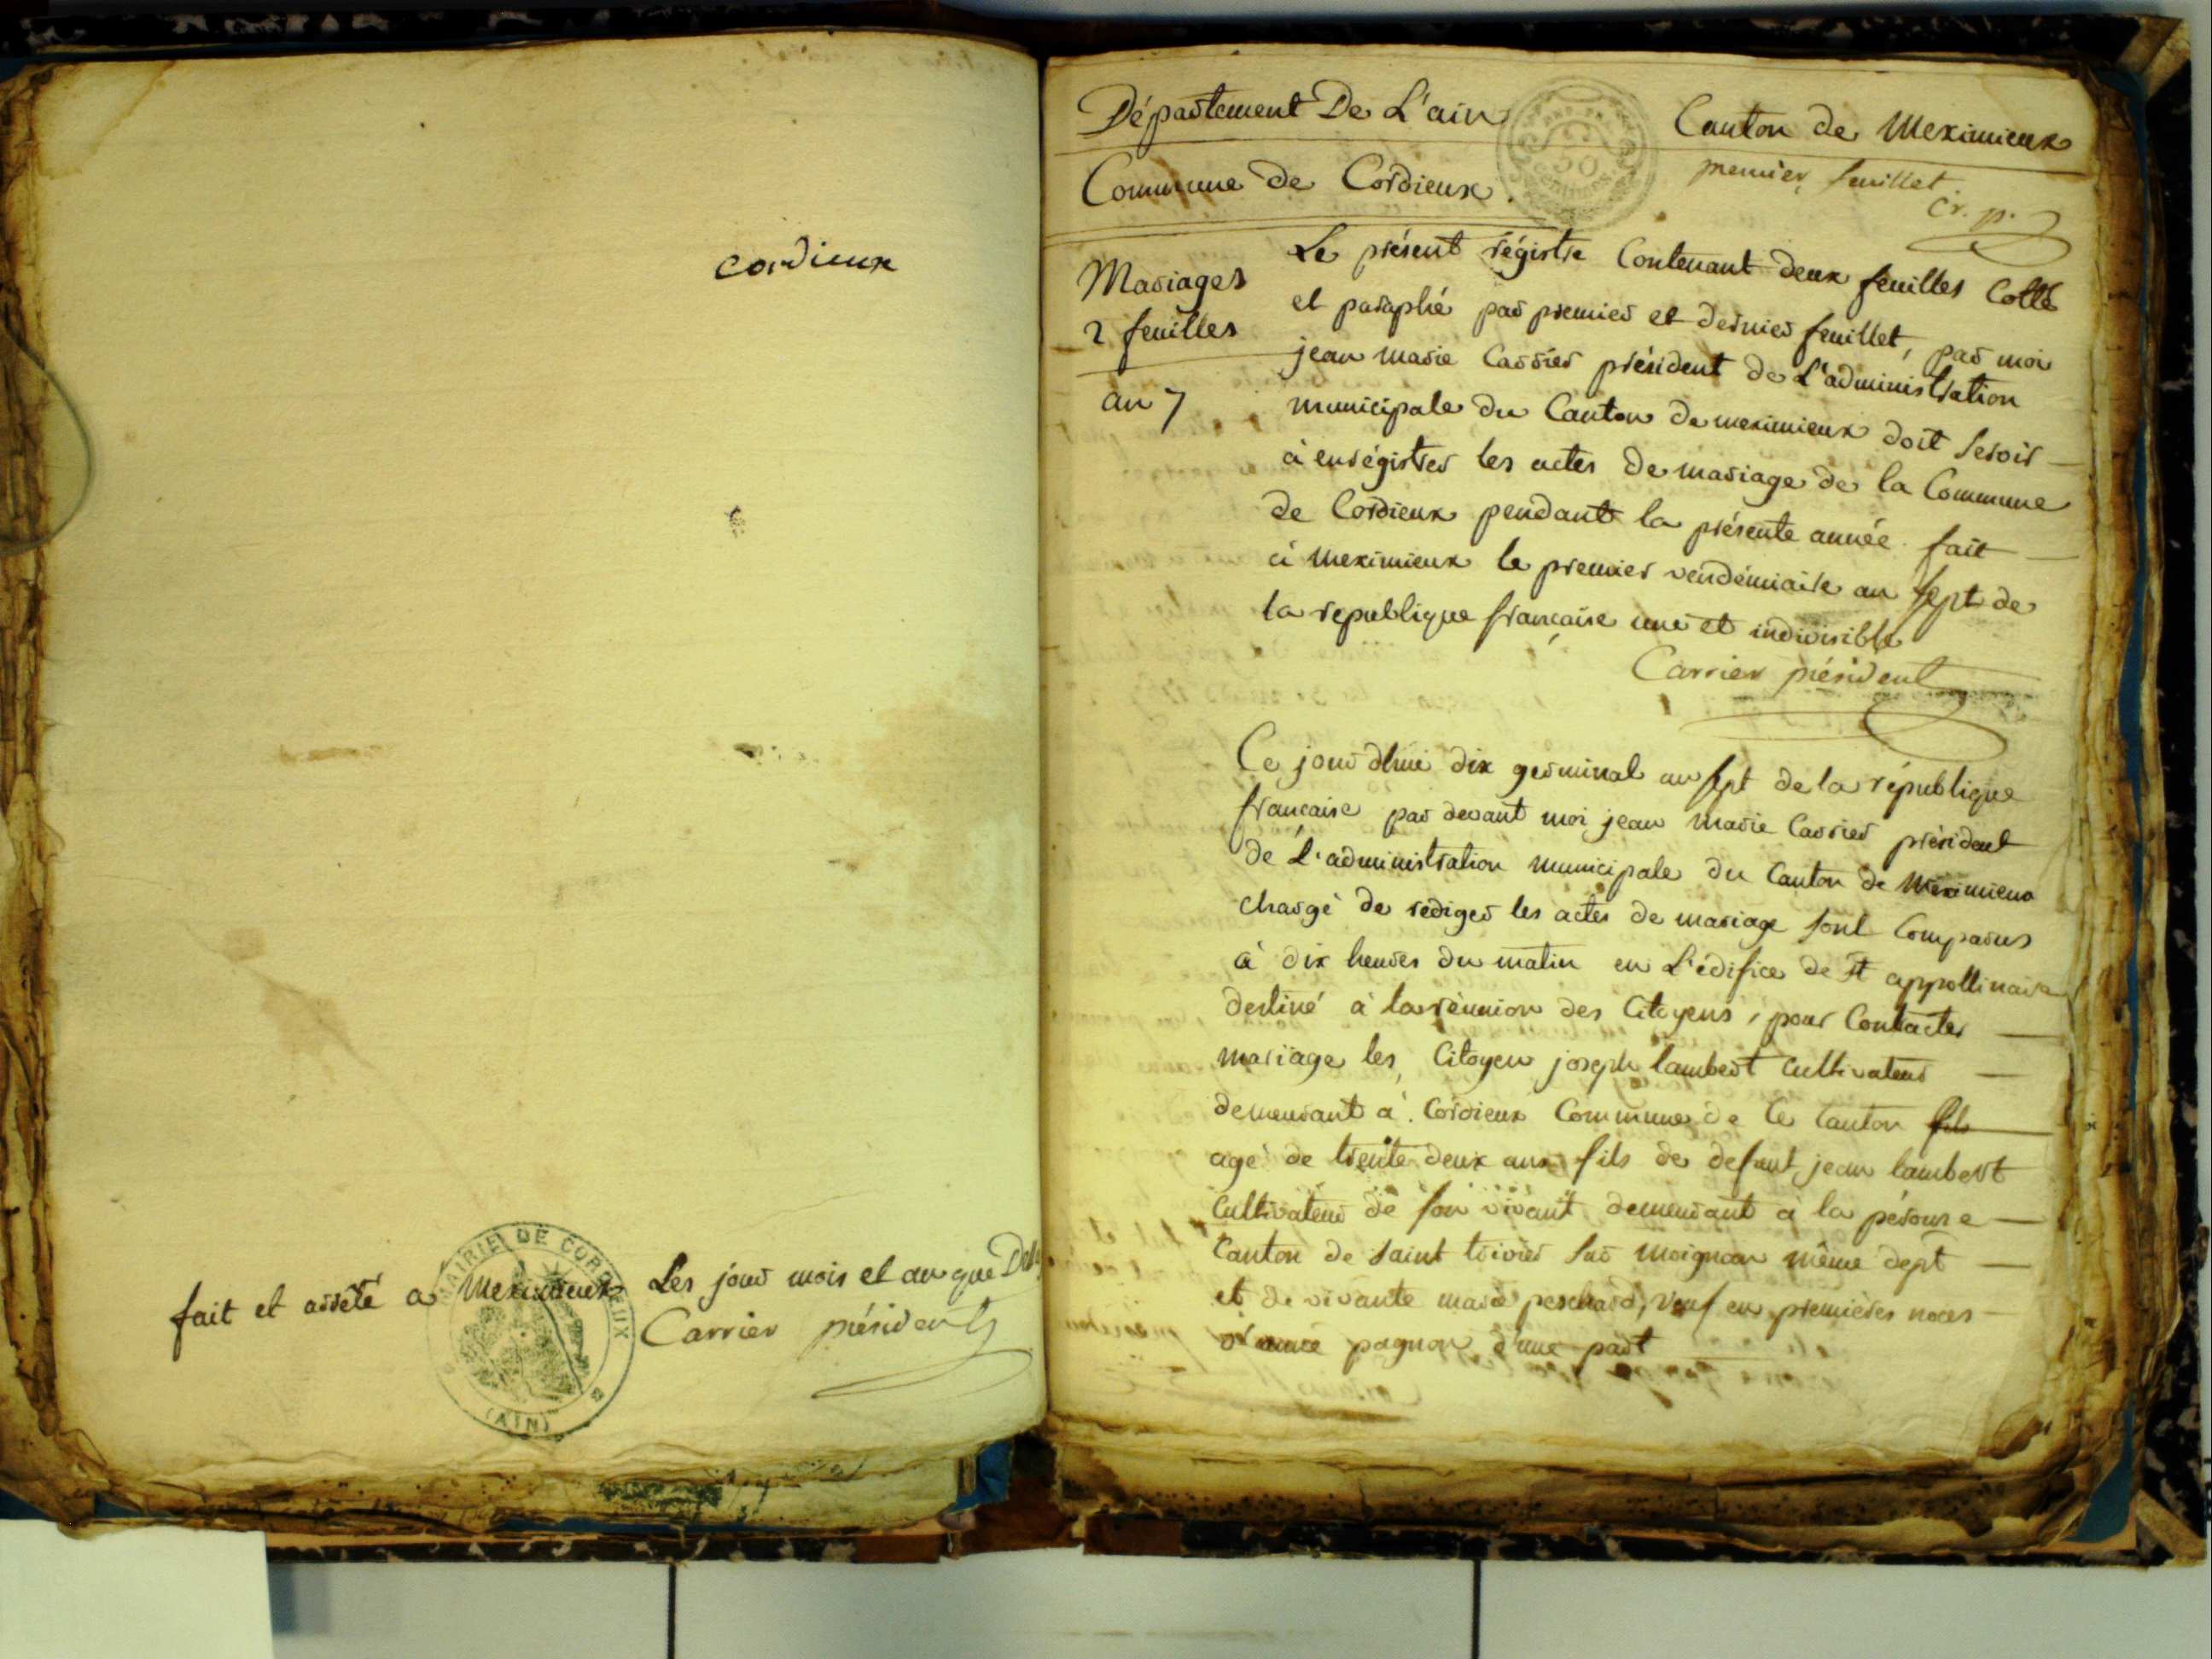 cordieux
fait et arrêté a Meximieux Les jour mois et an que
Carrier président
MAIRIE DE CORDIEUX
(AIN)
Département De L'ain
Canton de Meximieux
50
CENTIMES
Commune de Cordieux.
premier feuillet
cr. p.
Mariages
2 feuilles
an 7
Le présent régistre Contenant deux feuilles Cotté
et paraphé par premier et dernier feuillet, par moi
jean marie Carrier président de L'administration
municipale du Canton de meximieux doit servir
à enrégistrer les actes de mariage de la Commune
de Cordieux pendant la présente année. fait
à meximieux le premier vendémiaire an sept de
la republique française une et indivisible
Carrier président
Ce jour dhui dix germinal an sept de la république
française par devant moi jean marie Carrier président
de L'administration municipale du Canton de Meximieux
chargé de rédiger les actes de mariage sont Comparus
à dix heures du matin en L'édifice de st appollinaire
destiné à la réunion des Citoyens, pour Contracter
mariage les, Citoyen joseph lambert Cultivateur
demeurant à Cordieux Commune de Ce Canton fils
agé de trente deux ans fils de defunt jean lambert
Cultivateur de son vivant demeurant à la pérouse
Canton de saint trivier sur moignan même dept
et de vivante marie veuf en premières noces
pagnon d'une part